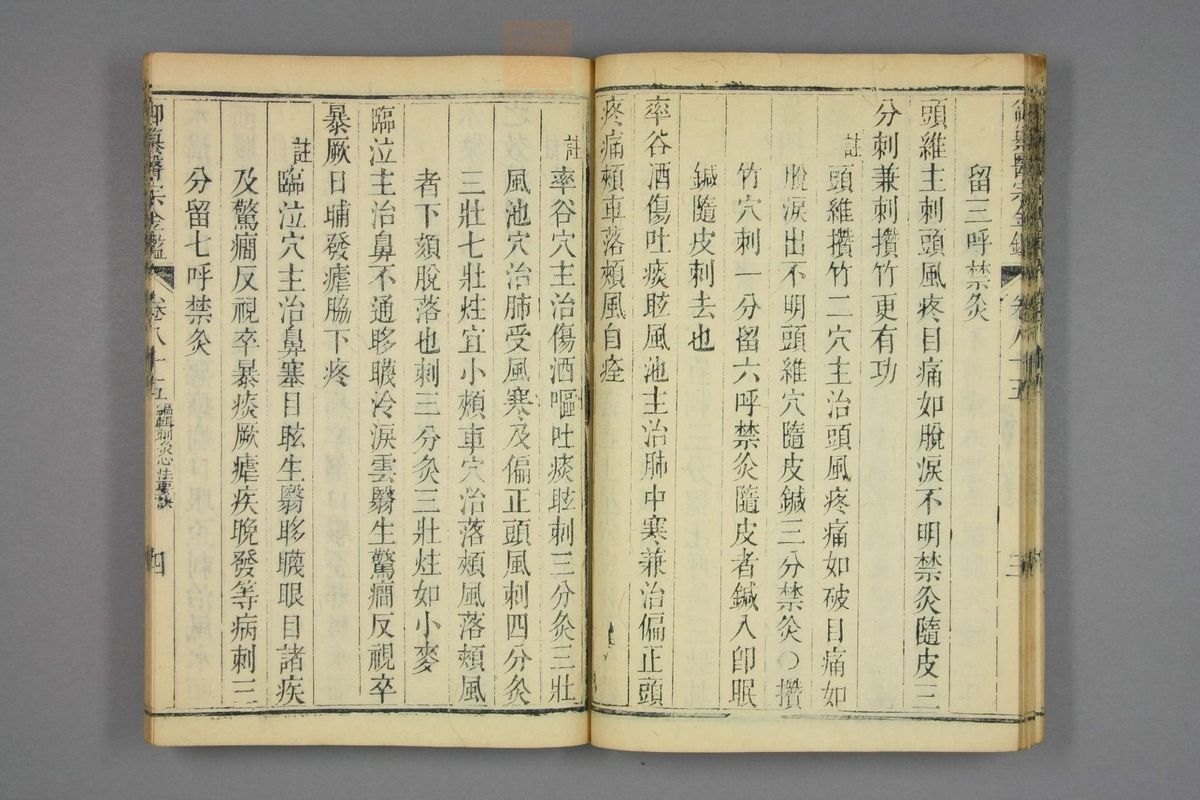 御纂醫宗金鑑 卷八十五 三
留三呼禁灸
頭維主刺頭風疼目痛如脫淚不明禁灸隨皮三
分刺兼刺攢竹更有功
註頭維攢竹二穴主治頭風疼痛如破目痛如
脫淚出不明頭維穴隨皮鍼三分禁灸○攢
竹穴刺一分留六呼禁灸隨皮者鍼入卽眠
鍼隨皮刺去也
率谷酒傷吐痰眩風池主治肺中寒兼治偏正頭
疼痛頰車落頰風自痊
註率谷穴主治傷酒嘔吐痰眩刺三分灸三壯
風池穴治肺受風寒及偏正頭風刺四分灸
三壯七壯炷宜小頰車穴治落頰風落頰風
者下頦脫落也刺三分灸三壯炷如小麥
臨泣主治鼻不通眵𥉻冷淚雲翳生驚癎反視卒
暴厥日晡發瘧脇下疼
註臨泣穴主治鼻塞目眩生翳眵𥉻眼目諸疾
及驚癎反視卒暴痰厥瘧疾晚發等病刺三
分留七呼禁灸
御纂醫宗金鑑 卷八十五 編輯刺灸心法要訣 四